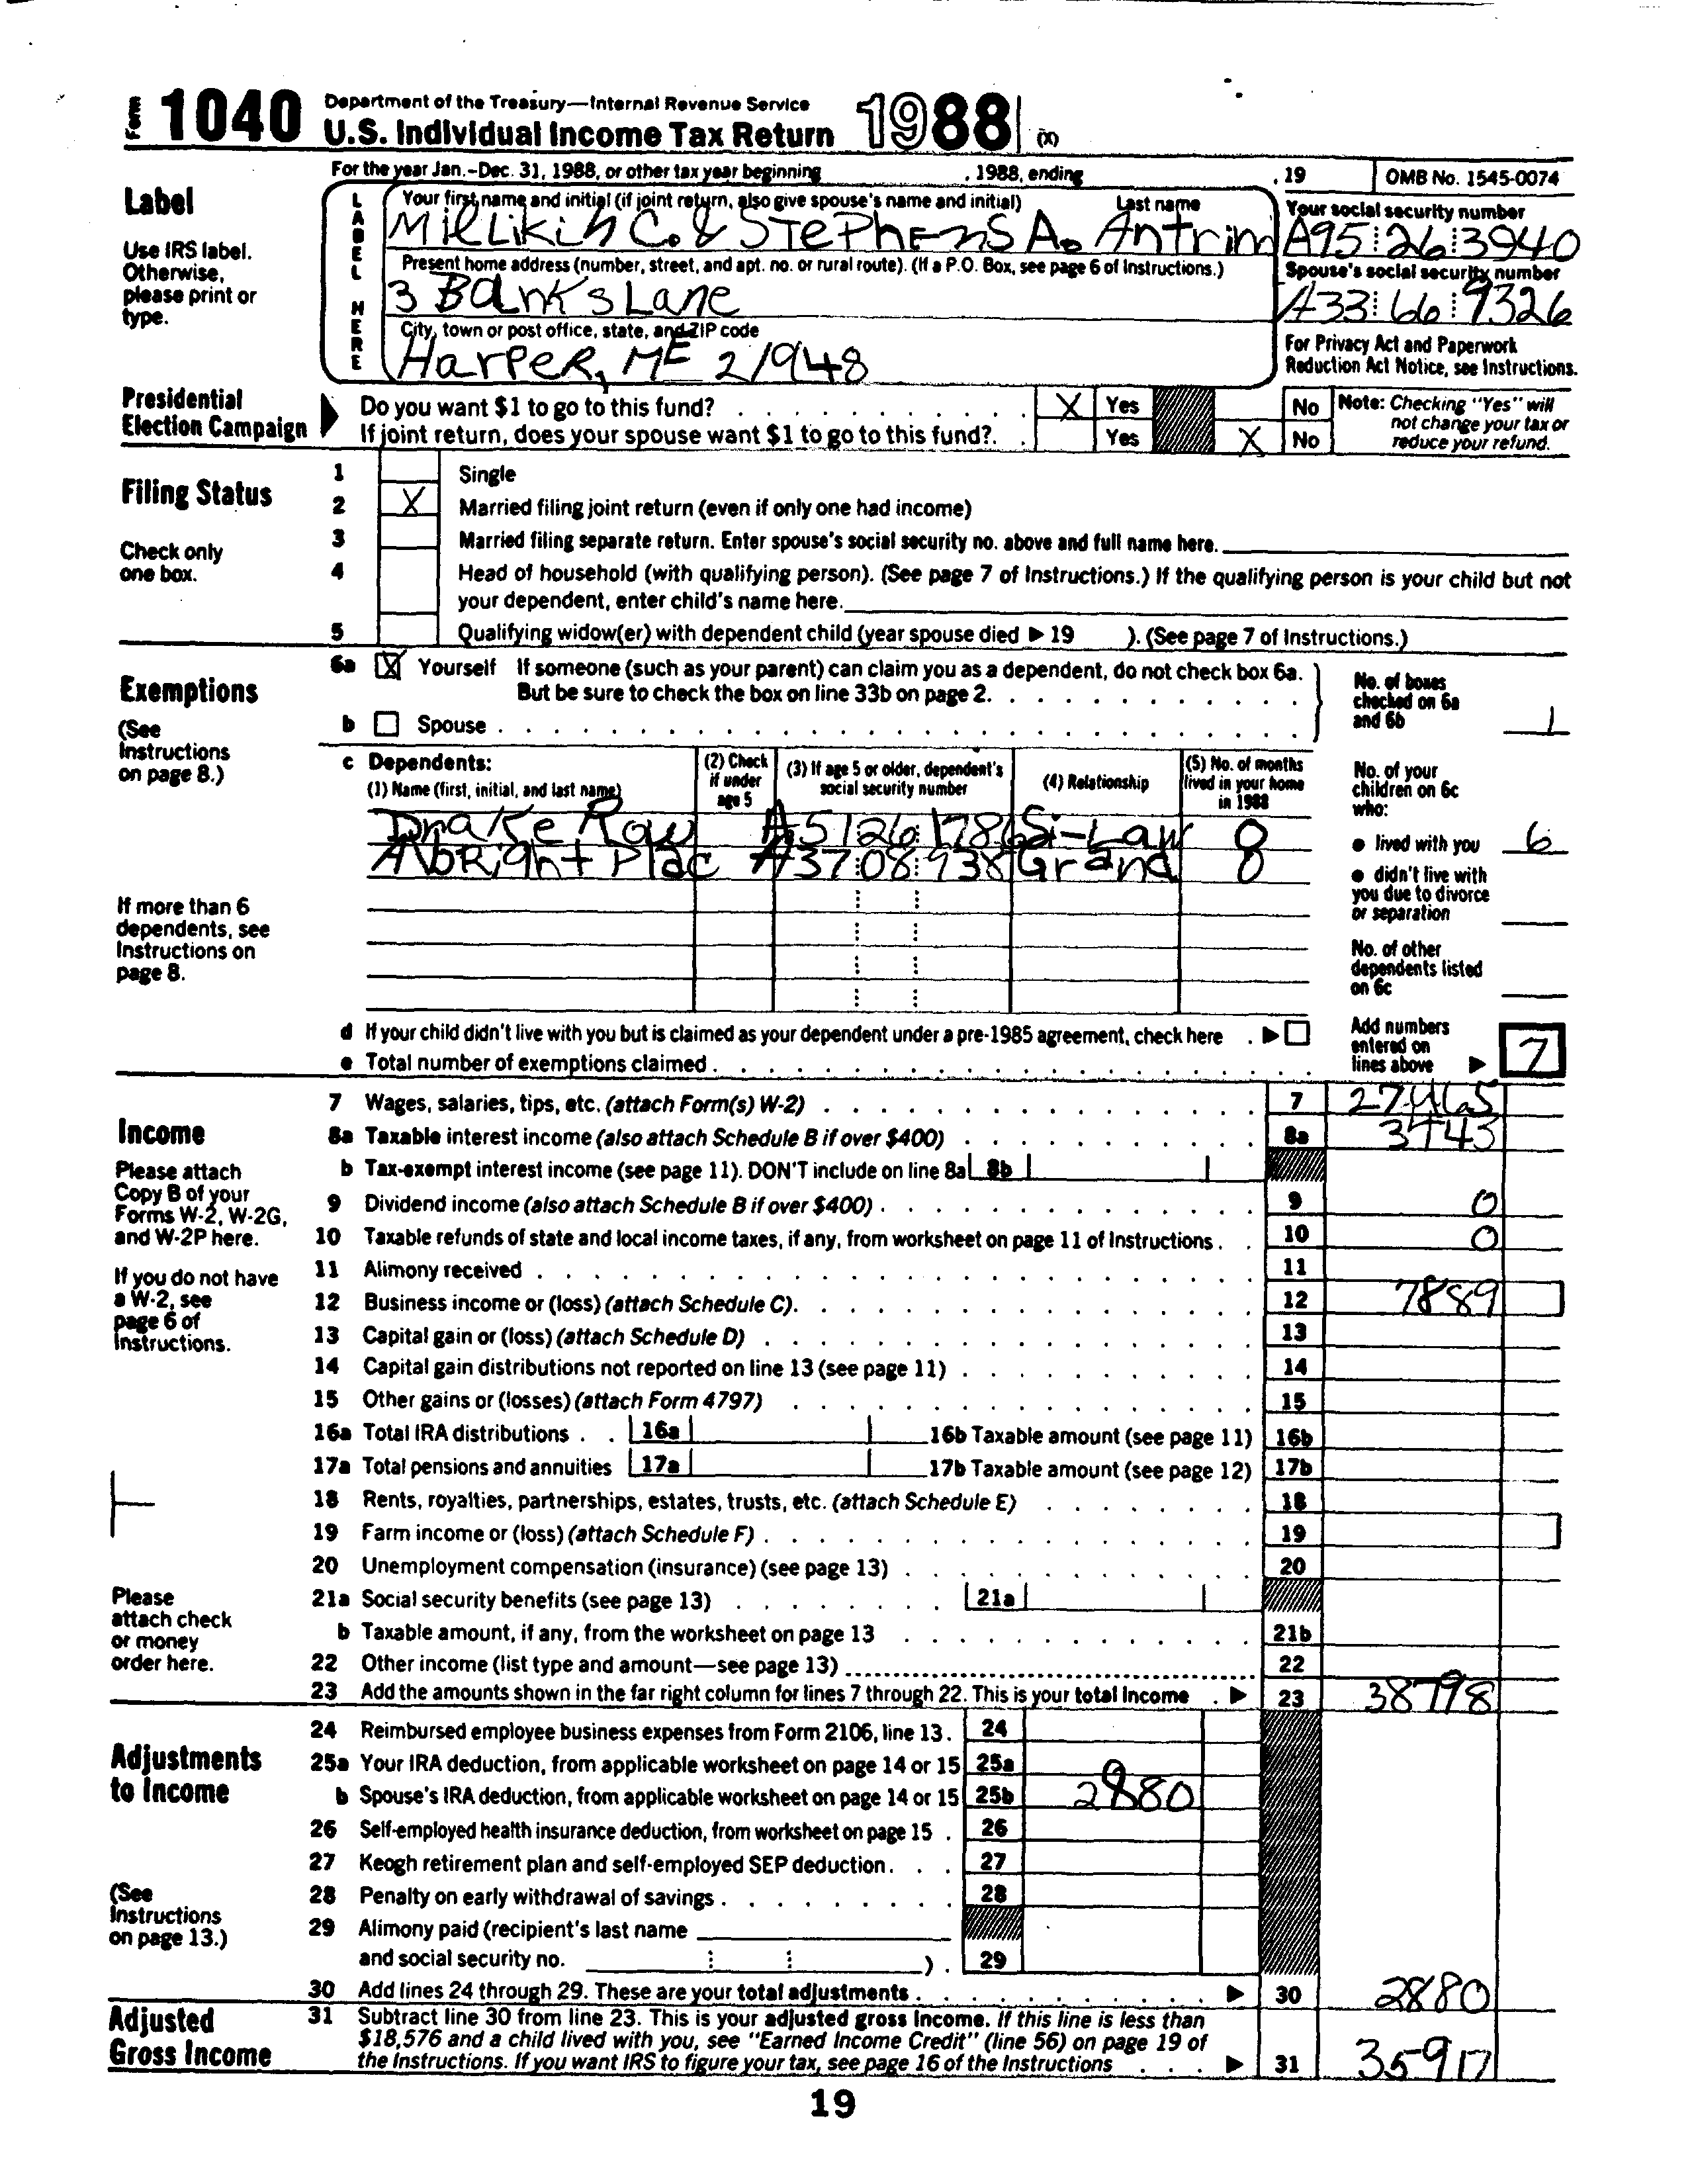 Form 1040 Department of the Treasury—Internal Revenue Service
U.S. Individual Income Tax Return 1988 (X)
For the year Jan.-Dec. 31, 1988, or other tax year beginning , 1988, ending , 19 OMB No. 1545-0074
Label
Use IRS label.
Otherwise,
please print or
type.
LABEL HERE
Your first name and initial (if joint return, also give spouse's name and initial) Last name
Millikin C. & Stephens A. Antrim
Your social security number
A95 26 3940
Present home address (number, street, and apt. no. or rural route). (If a P.O. Box, see page 6 of Instructions.)
3 Banks Lane
Spouse's social security number
A33 66 9326
City, town or post office, state, and ZIP code
Harper, ME 21948
For Privacy Act and Paperwork
Reduction Act Notice, see Instructions.
Presidential
Election Campaign
Do you want $1 to go to this fund? X Yes No
If joint return, does your spouse want $1 to go to this fund?. Yes X No
Note: Checking "Yes" will
not change your tax or
reduce your refund.
Filing Status
Check only
one box.
1 Single
2 X Married filing joint return (even if only one had income)
3 Married filing separate return. Enter spouse's social security no. above and full name here.
4 Head of household (with qualifying person). (See page 7 of Instructions.) If the qualifying person is your child but not
your dependent, enter child's name here.
5 Qualifying widow(er) with dependent child (year spouse died ▶ 19 ). (See page 7 of Instructions.)
Exemptions
(See
Instructions
on page 8.)
6a X Yourself If someone (such as your parent) can claim you as a dependent, do not check box 6a.
But be sure to check the box on line 33b on page 2.
b Spouse
No. of boxes
checked on 6a
and 6b 1
c Dependents:
(1) Name (first, initial, and last name)
(2) Check
if under
age 5
(3) If age 5 or older, dependent's
social security number
(4) Relationship
(5) No. of months
lived in your home
in 1988
Drake Row A5126 1786 Si-Law 8
Albright Plac A37 08 938 Grand 8
No. of your
children on 6c
who:
● lived with you 6
● didn't live with
you due to divorce
or separation
No. of other
dependents listed
on 6c
If more than 6
dependents, see
Instructions on
page 8.
d If your child didn't live with you but is claimed as your dependent under a pre-1985 agreement, check here . ▶
e Total number of exemptions claimed
Add numbers
entered on
lines above ▶ 7
Income
Please attach
Copy B of your
Forms W-2, W-2G,
and W-2P here.
If you do not have
a W-2, see
page 6 of
Instructions.
Please
attach check
or money
order here.
7 Wages, salaries, tips, etc. (attach Form(s) W-2) 7 27465
8a Taxable interest income (also attach Schedule B if over $400) 8a 3443
b Tax-exempt interest income (see page 11). DON'T include on line 8a 8b
9 Dividend income (also attach Schedule B if over $400) 9 0
10 Taxable refunds of state and local income taxes, if any, from worksheet on page 11 of Instructions 10 0
11 Alimony received 11
12 Business income or (loss) (attach Schedule C). 12 7889
13 Capital gain or (loss) (attach Schedule D) 13
14 Capital gain distributions not reported on line 13 (see page 11) 14
15 Other gains or (losses) (attach Form 4797) 15
16a Total IRA distributions 16a 16b Taxable amount (see page 11) 16b
17a Total pensions and annuities 17a 17b Taxable amount (see page 12) 17b
18 Rents, royalties, partnerships, estates, trusts, etc. (attach Schedule E) 18
19 Farm income or (loss) (attach Schedule F) 19
20 Unemployment compensation (insurance) (see page 13) 20
21a Social security benefits (see page 13) 21a
b Taxable amount, if any, from the worksheet on page 13 21b
22 Other income (list type and amount—see page 13) 22
23 Add the amounts shown in the far right column for lines 7 through 22. This is your total income ▶ 23 38798
Adjustments
to Income
(See
Instructions
on page 13.)
24 Reimbursed employee business expenses from Form 2106, line 13. 24
25a Your IRA deduction, from applicable worksheet on page 14 or 15 25a
b Spouse's IRA deduction, from applicable worksheet on page 14 or 15 25b 2880
26 Self-employed health insurance deduction, from worksheet on page 15 26
27 Keogh retirement plan and self-employed SEP deduction. 27
28 Penalty on early withdrawal of savings 28
29 Alimony paid (recipient's last name
and social security no. ) . 29
30 Add lines 24 through 29. These are your total adjustments ▶ 30 2880
Adjusted
Gross Income
31 Subtract line 30 from line 23. This is your adjusted gross income. If this line is less than
$18,576 and a child lived with you, see "Earned Income Credit" (line 56) on page 19 of
the Instructions. If you want IRS to figure your tax, see page 16 of the Instructions ▶ 31 35917
19